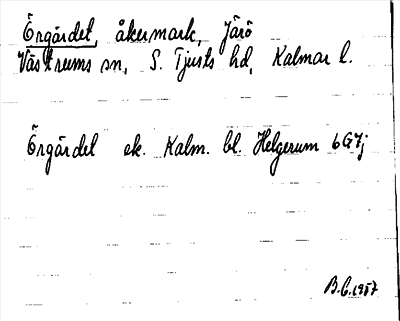 Örgärdet, åkermark, Järö
Västrums sn, S. Tjusts hd, Kalmar l.
Örgärdet ek. Kalm. bl. Helgerum 6G7j
B.C. 1957